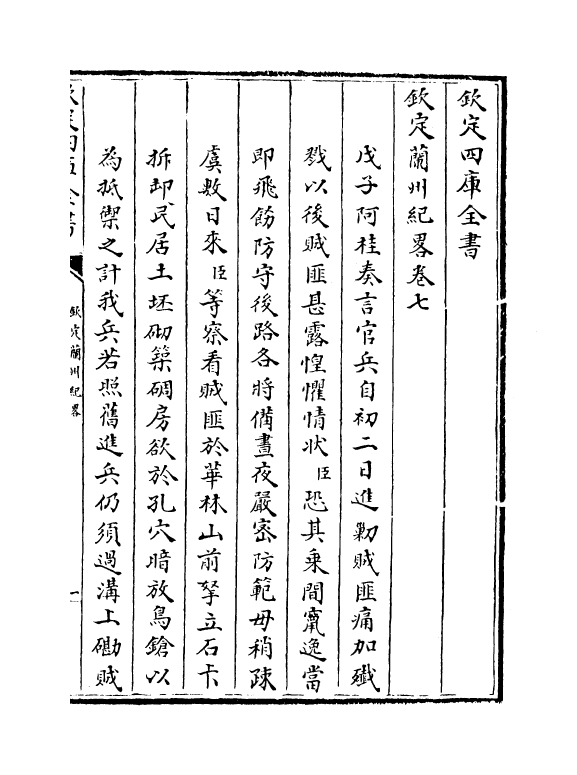 欽定四庫全書
欽定蘭州紀畧卷七
戊子阿桂奏言官兵自初二日進勦賊匪痛加殲
戮以後賊匪甚露惶懼情狀臣恐其乗間竄逸當
即飛飭防守後路各將備晝夜嚴宻防範毋稍疎
虞數日來臣等察看賊匪於華林山前拏立石卡
拆却民居土坯砌築碉房欲於孔穴暗放鳥鎗以
為抵禦之計我兵若照舊進兵仍須過溝上磡賊
欽定四庫全書
欽定蘭州紀畧
一